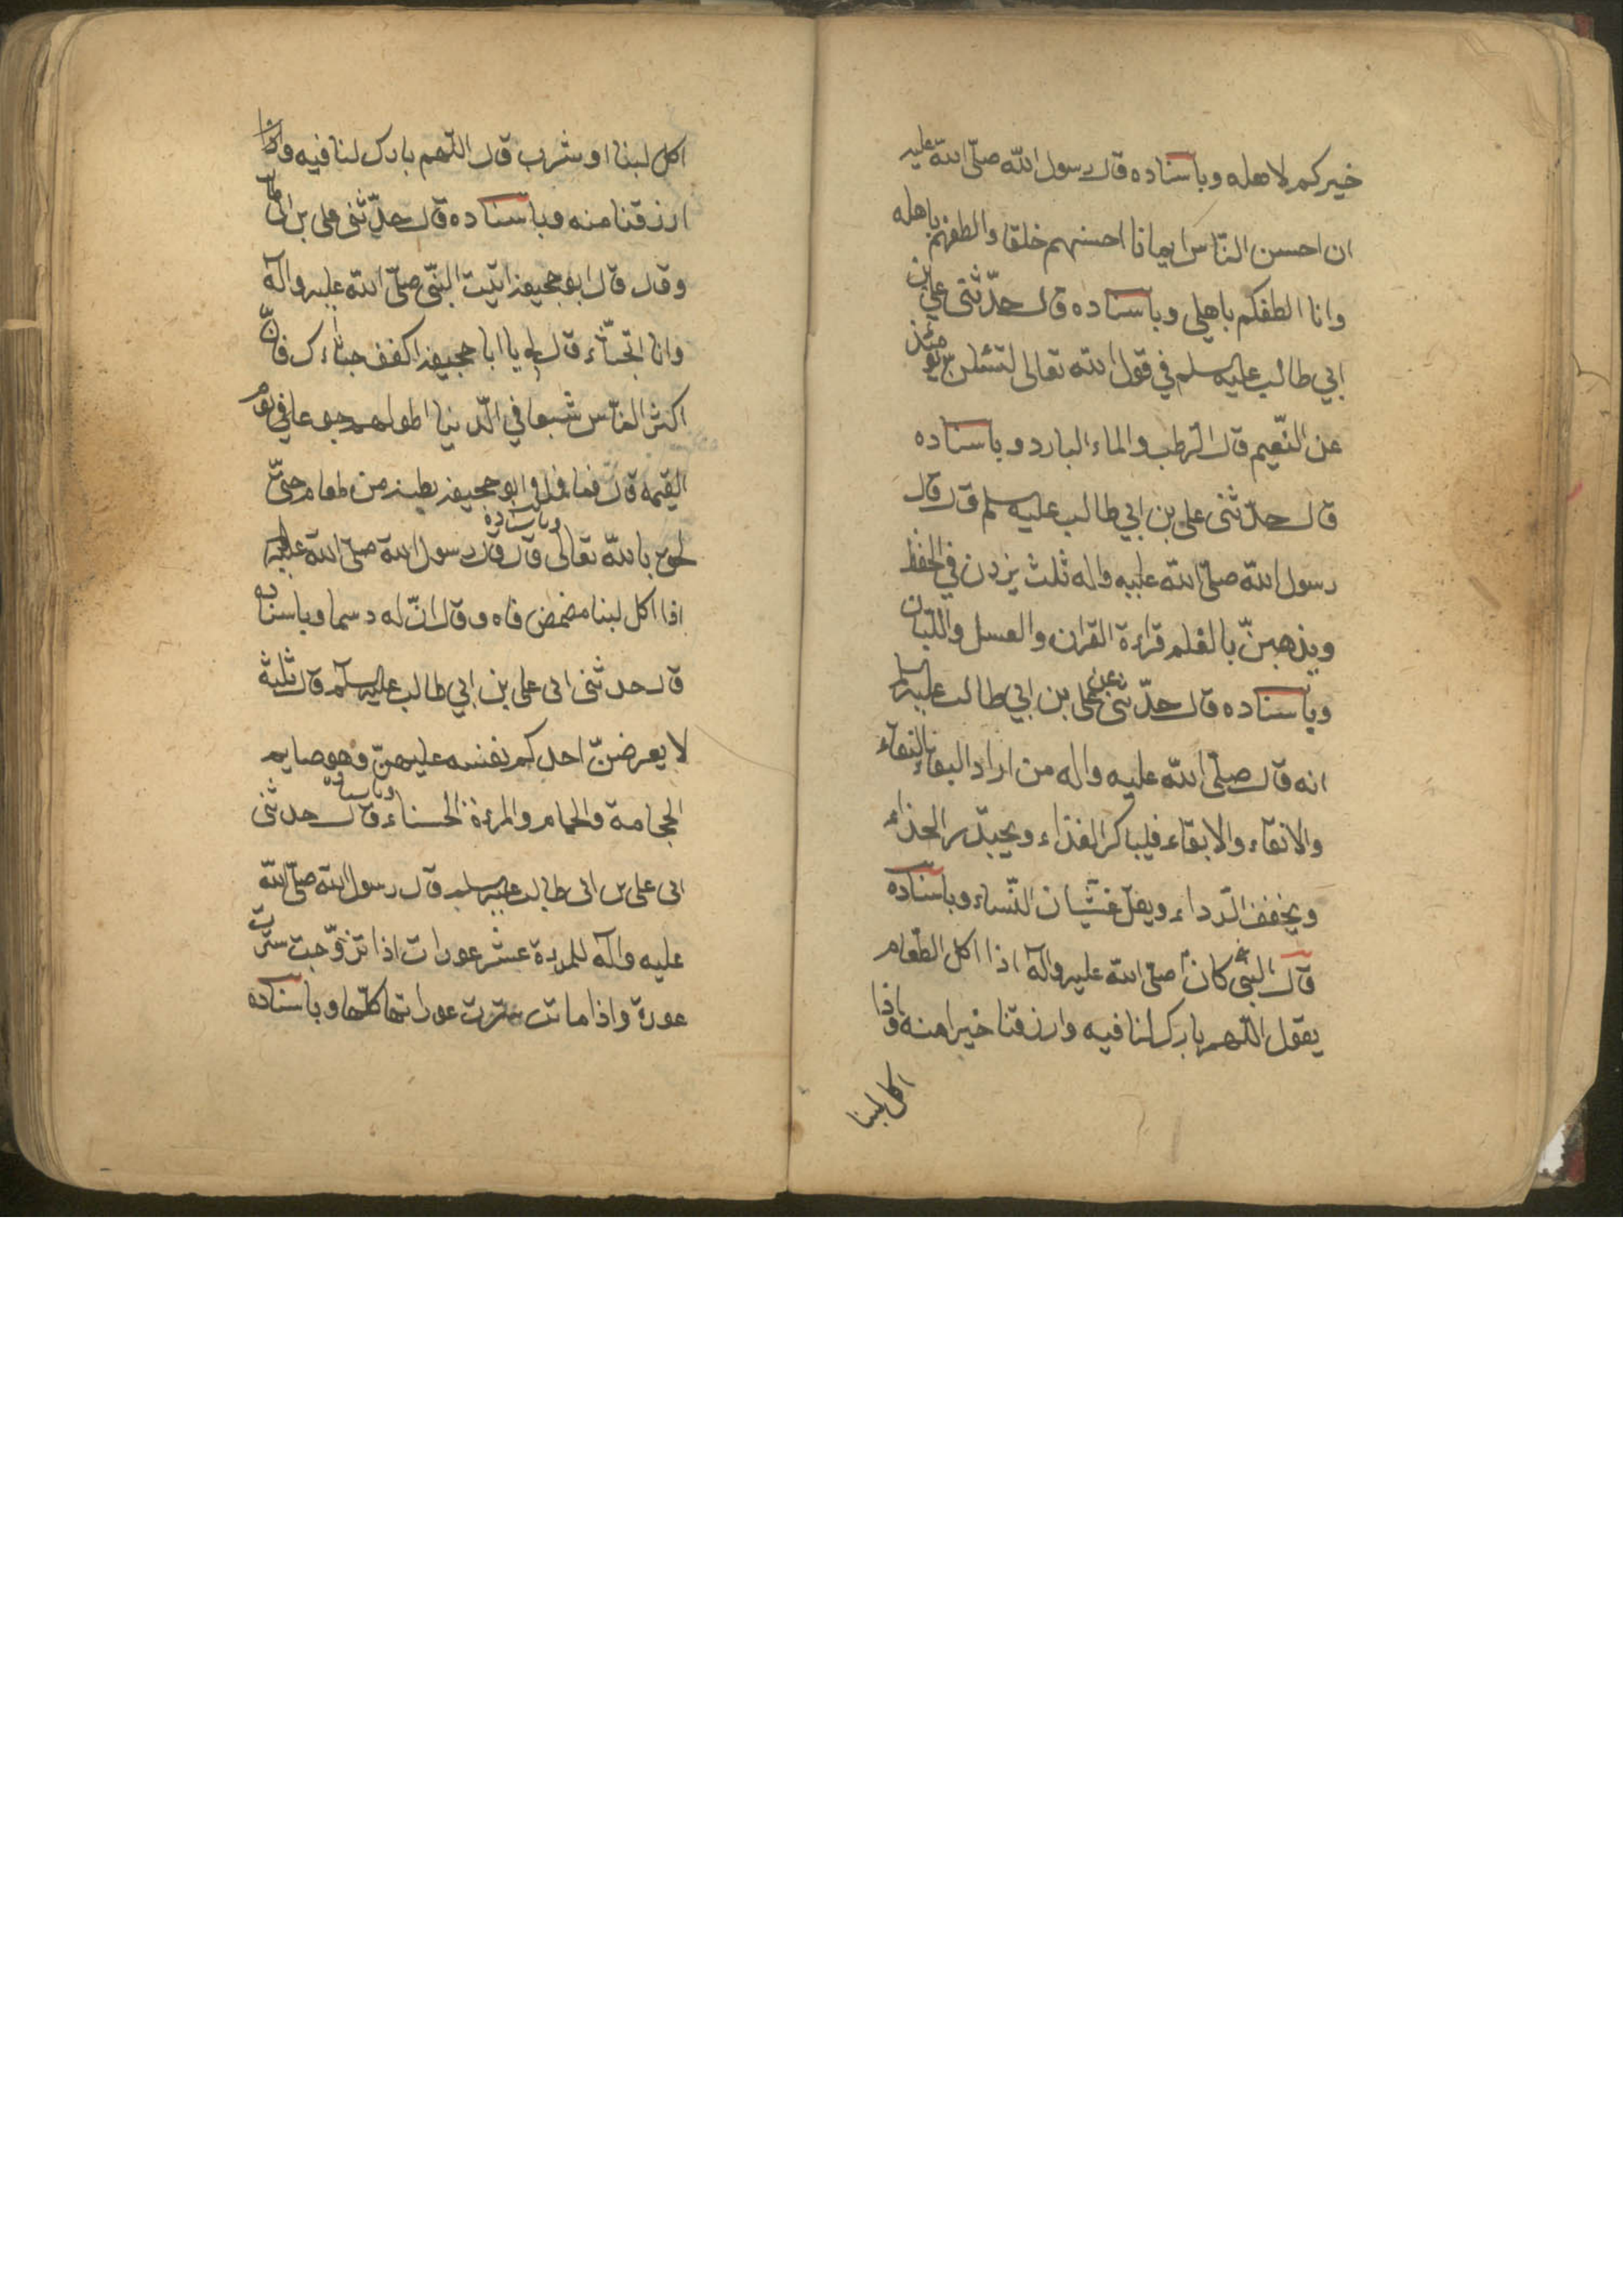 خيركم لاهله وباسناده قال رسول الله صلّى الله عليه
ان احسن النّاس ايمانا احسنهم خلقا والطفهم باهله
وانا الطفكم باهلى وباسناده قال حدّثنى على بن
ابي طالب عليه سلم في قول الله تعالى لتسئلن يومئذ
عن النّعيم قال الرطب والماء البارد وباسناده
قال حدّثنى على بن ابي طالب عليه سلم قال قال
رسول الله صلّى الله عليه واله ثلث يزدن في الحفظ
ويذهبنّ بالبلغم قراءة القران والعسل واللّبان
وباسناده قال حدّثنى على بن ابي طالب عليه السلم
انه قال صلّى الله عليه واله من اراد البقاء
والانقاء والابقاء فليباكر الغذاء ويجيّد الحذاء
ويخفف الرّداء ويقل غشيان النّساء وباسناده
قال النبى كان صلى الله عليه وآله اذا اكل الطعام
يقول اللّهم بارك لنا فيه وارزقنا خيرا منه واذا
اكل لبنا
اكل لبنا او شرب قال اللّهم بارك لنا فيه
ارزقنا منه وباسناده قال حدّثنى على بن ابى طالب
وقال قال ابو جحيفة اتيت النبّى صلّى الله عليه وآله
وانا اتجشّاء قال يا ابا جحيفة اكفف جشاءك فانّ
اكثر النّاس شبعا في الدّنيا اطولهم جوعا في يوم
القيمة قال فما ملا ابو جحيفة بطنه من طعام حتّى
لحق بالله تعالى وباسناده قال قال رسول الله صلّى الله عليه
اذا اكل لبنا مضمض فاه وقال انّ له دسما وباسناده
قال حدثنى ابى على بن ابي طالب عليه سلم قال ثلثة
لا يعرضنّ احدكم نفسه عليهنّ وهو صايم
الحجامة والحمام والمرءة الحسناء وباسناده قال حدثنى
ابى على بن ابى طالب عليه سلم قال رسول الله صلّى الله
عليه وآله للمرءة عشر عورات اذا تزوّجت سترت
عورة واذا ماتت سترت عوراتها كلّها وباسناده